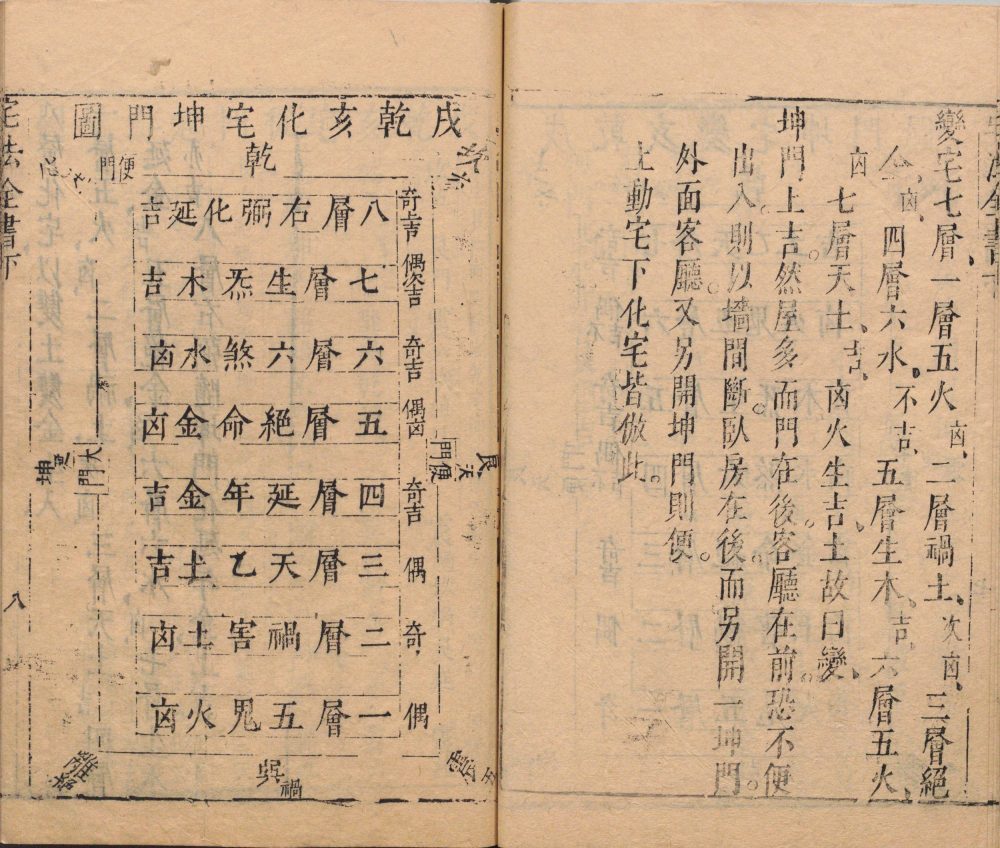 變宅七層一層五火 凶、二層禍土、次凶、三層絕
金、凶、四層六水、不吉、五層生木、吉、六層五火、
凶 七層天土、吉、凶火生吉土故曰變、
坤門上吉然屋多而門在後客廳在前恐不便
出入則以墻間斷臥房在後而另開一坤門。
外面客廳又另開坤門則便。
上動宅下化宅皆倣此。
戌乾亥化宅坤門圖
乾
便門
八層右弼化延吉 奇吉
七層生炁木吉 偶次吉
六層六煞水凶 奇吉
五層絕命金凶 偶凶
四層延年金吉 奇吉
三層天乙土吉 偶
二層禍害土凶 奇
一層五鬼火凶 偶
艮天
便門
大門
坤
禍
宅法全書下
八